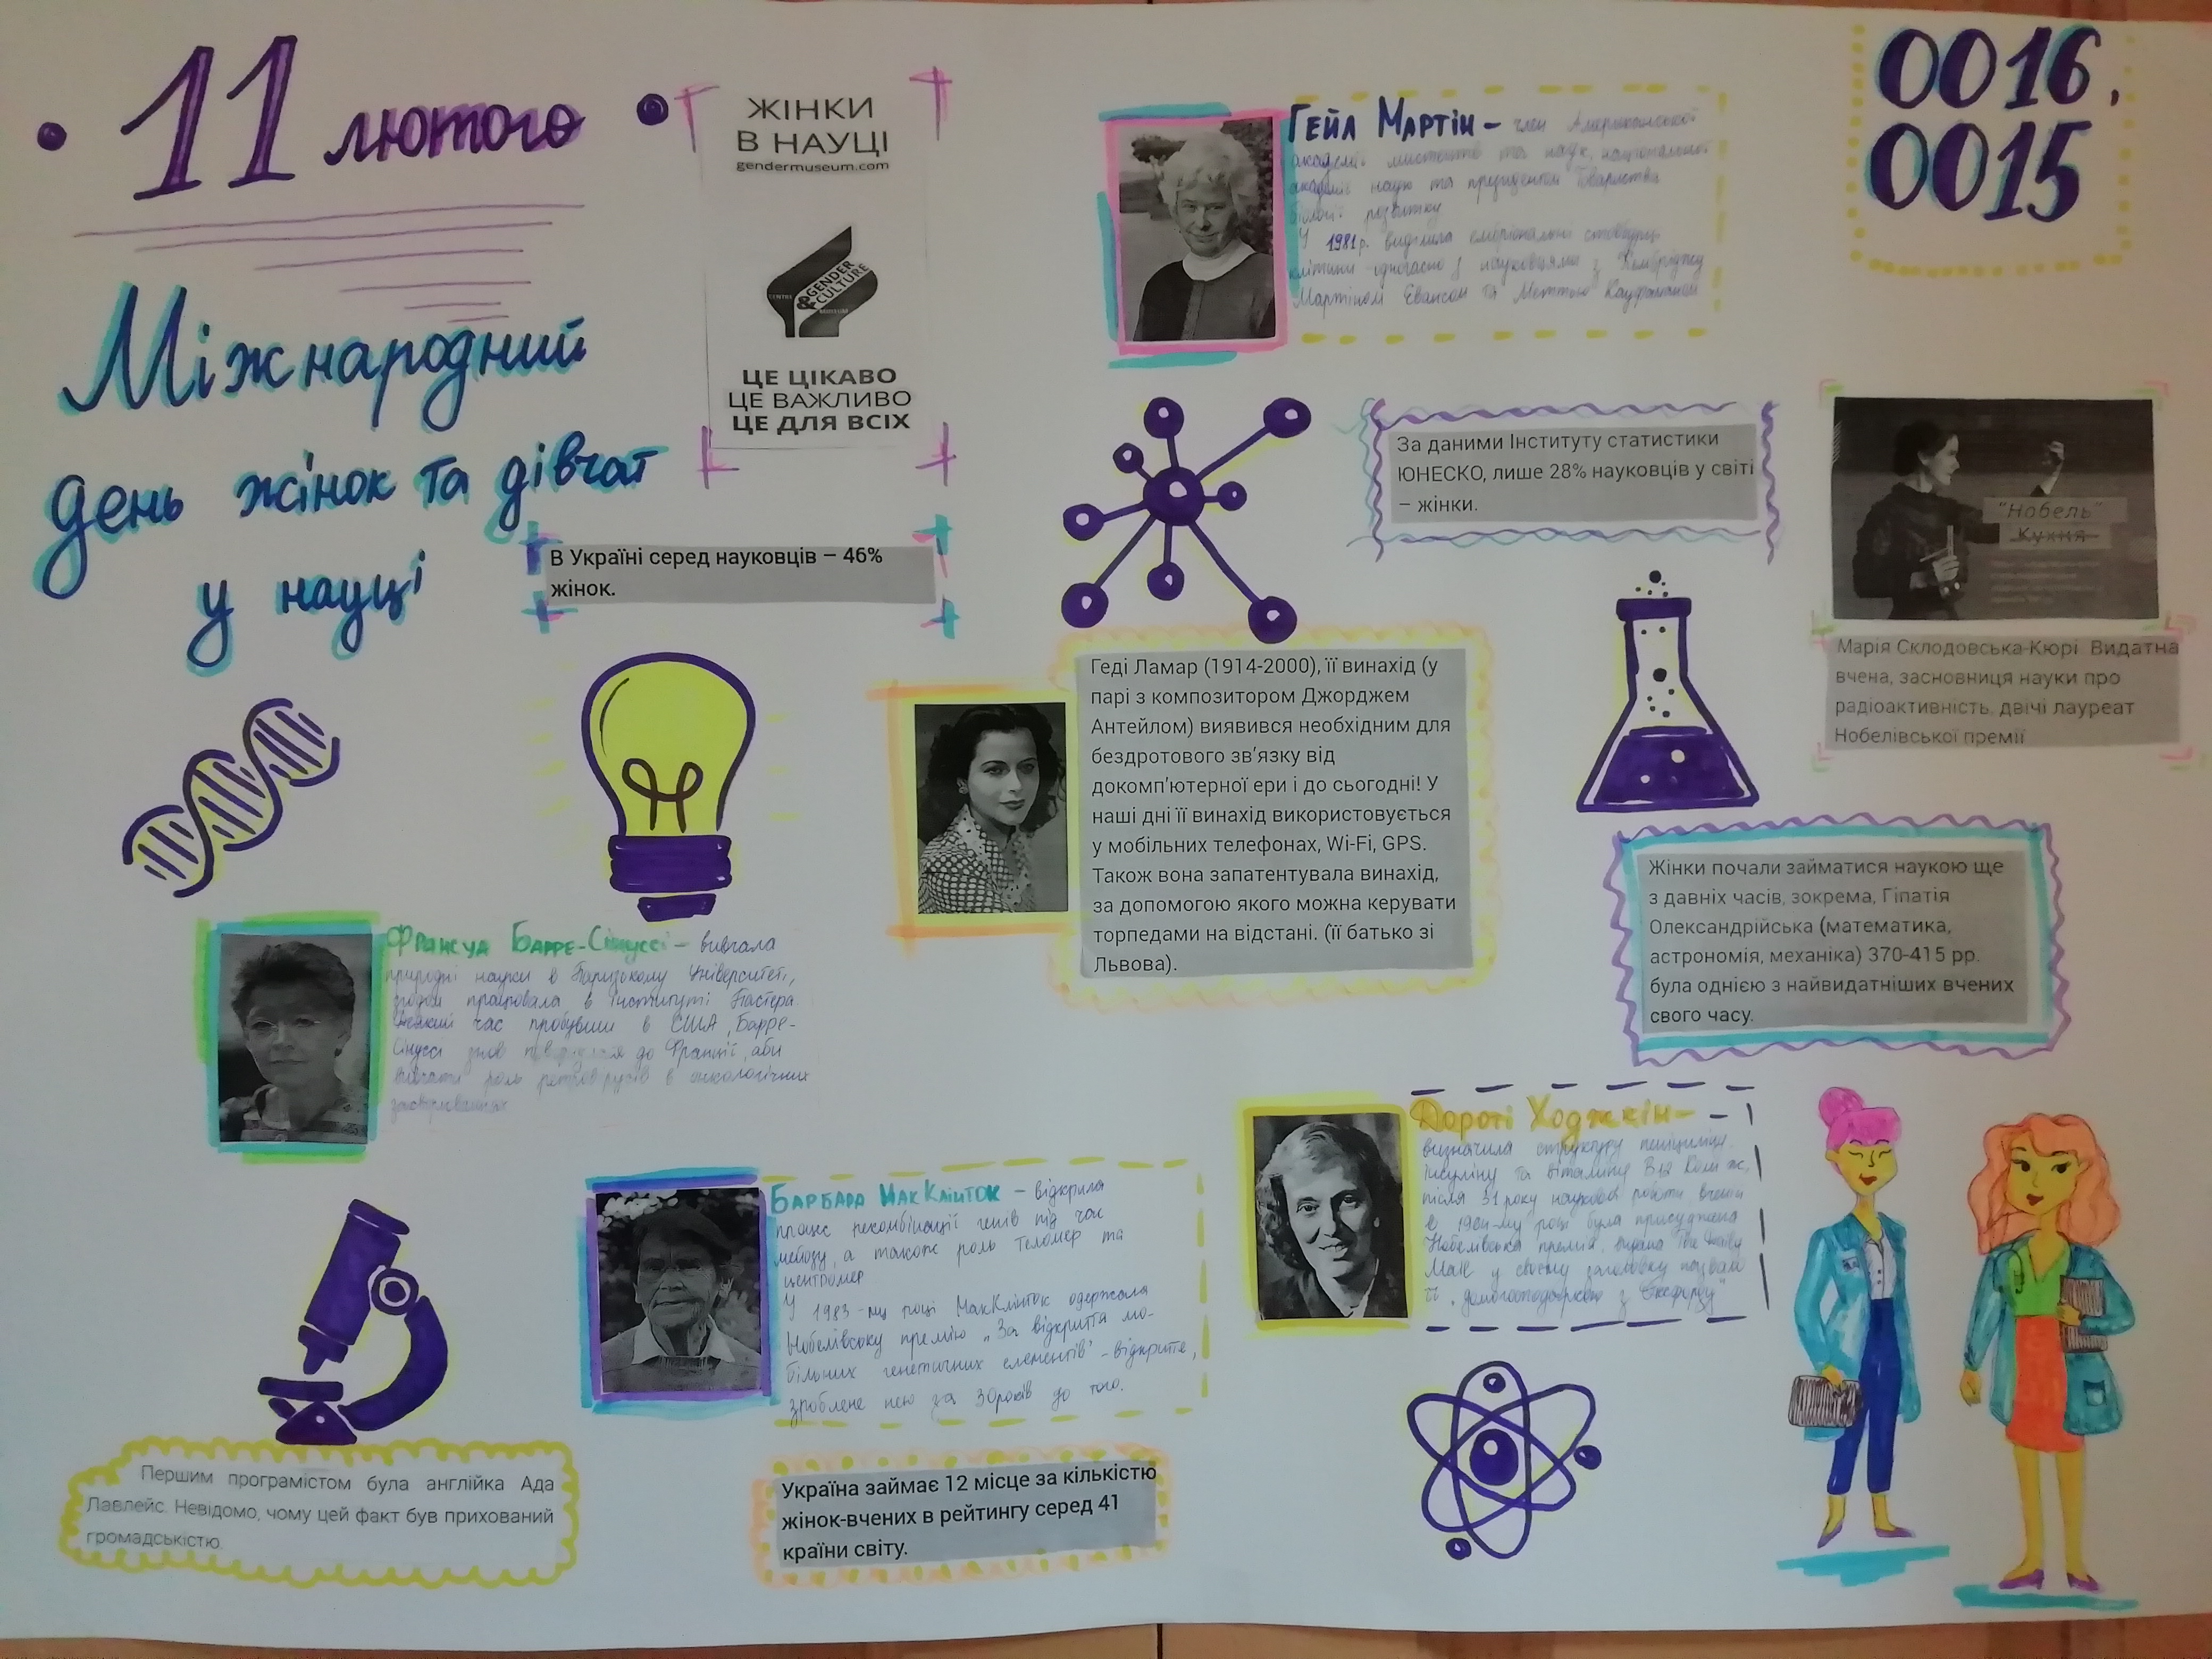 11 лютого
Міжнародний
день жінок та дівчат
у науці
ЖІНКИ
В НАУЦІ
gendermuseum.com
CENTRE
GENDER
& CULTURE
MUSEUM
ЦЕ ЦІКАВО
ЦЕ ВАЖЛИВО
ЦЕ ДЛЯ ВСІХ
В Україні серед науковців – 46%
жінок.
Гейл Мартін – член Американської
академії мистецтв та наук, національної
академії наук та президентом Товариства
біології розвитку
У 1981р. виділила ембріональні стовбурі
клітини одночасно з науковцями з Кембріджу
Мартіном Евансом та Меттью Кауфманом
0016,
0015
За даними Інституту статистики
ЮНЕСКО, лише 28% науковців у світі
– жінки.
"Нобель"
Кухня
Марія Склодовська-Кюрі. Видатна
вчена, засновниця науки про
радіоактивність, двічі лауреат
Нобелівської премії
Геді Ламар (1914-2000), її винахід (у
парі з композитором Джорджем
Антейлом) виявився необхідним для
бездротового зв’язку від
докомп’ютерної ери і до сьогодні! У
наші дні її винахід використовується
у мобільних телефонах, Wi-Fi, GPS.
Також вона запатентувала винахід,
за допомогою якого можна керувати
торпедами на відстані. (її батько зі
Львова).
Жінки почали займатися наукою ще
з давніх часів, зокрема, Гіпатія
Олександрійська (математика,
астрономія, механіка) 370-415 рр.
була однією з найвидатніших вчених
свого часу.
Франсуа Барре-Сінуссі – вивчала
природні науки в Паризькому університеті,
згодом працювала в інституті Пастера.
час пробувши в США, Барре-
Сінуссі знов до Франції, аби
вивчати роль ретровірусів в онкологічних
захворюваннях
Барбара МакКлінток – відкрила
процес рекомбінації генів під час
мейозу, а також роль теломер та
центромер
У 1983-му році МакКлінток одержала
Нобелівську премію „За відкриття мо-
більних генетичних елементів" – відкриття,
зроблене нею за 30 років до того.
Дороті Ходжкін –
визначила структуру пеніциліну,
інсуліну та вітаміну B12 Коли ж,
після 31 року наукової роботи вченій
в 1964-му році була присуджена
Нобелівська премія, The Daily
Mail у своєму заголовку назвали
її „домогосподаркою з Оксфорду"
Першим програмістом була англійка Ада
Лавлейс. Невідомо, чому цей факт був прихований
громадськістю.
Україна займає 12 місце за кількістю
жінок-вчених в рейтингу серед 41
країни світу.